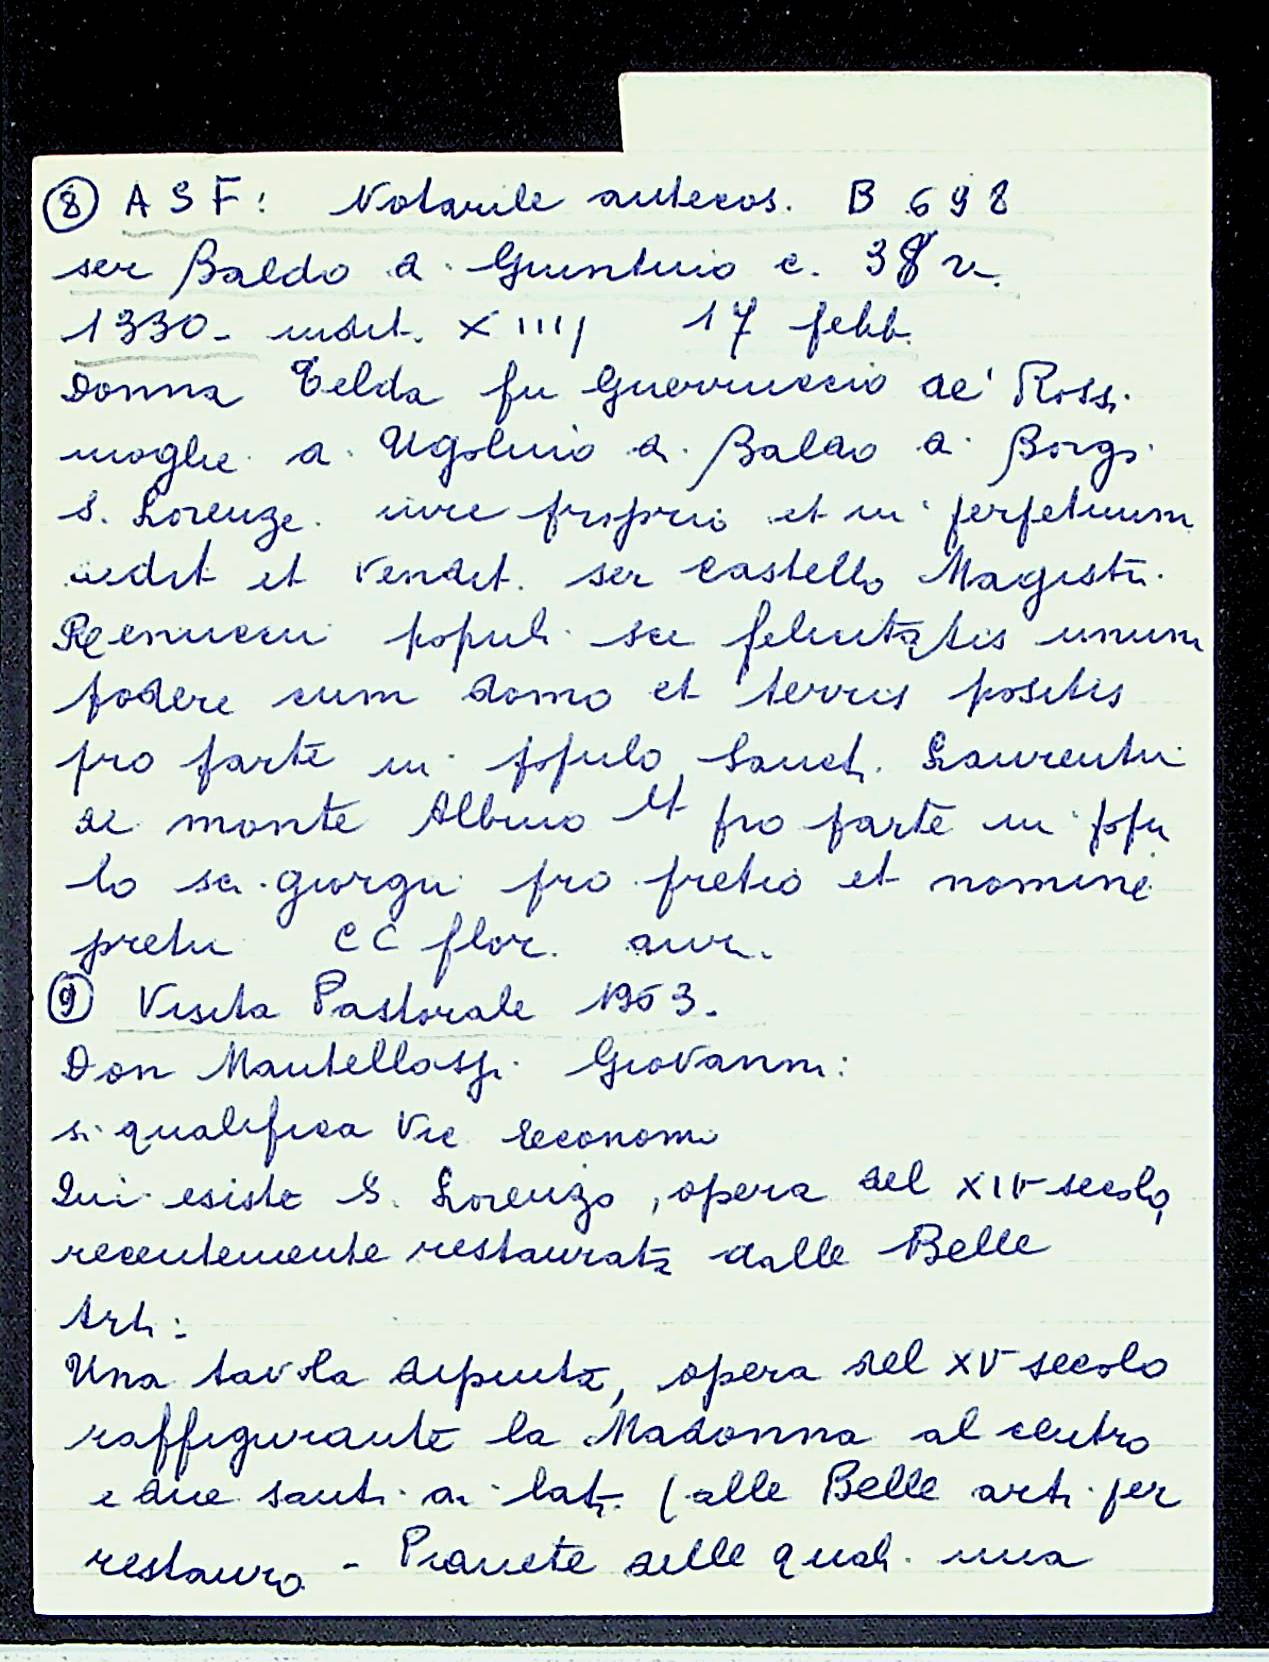 ⑧ A S F: Notarile antecos. B 698
ser Baldo di Giuntino c. 38 v.
1330 - indit. XIIII 17 febb.
Donna Telda fu Guerruccio de' Rossi
moglie di Ugolino di Baldo di Borgo
S. Lorenzo iure proprio et in perpetuum
dedit et vendit. ser Castello Magistri
Renuccii populi sce felicitatis unum
podere cum domo et terris positis
pro parte in populo Sancti Laurentii
de monte Albino et pro parte in popu
lo sci giorgii pro pretio et nomine
pretii CC flor. aur.
⑨ Visita Pastorale 1963.
Don Mantellassi Giovanni:
si qualifica Vic Economo
Qui esiste S. Lorenzo, opera del XIV secolo,
recentemente restaurata dalle Belle
Arti:
Una tavola dipinta, opera del XV secolo
raffigurante la Madonna al centro
e due santi ai lati (alle Belle arti per
restauro - Pianete delle quali una